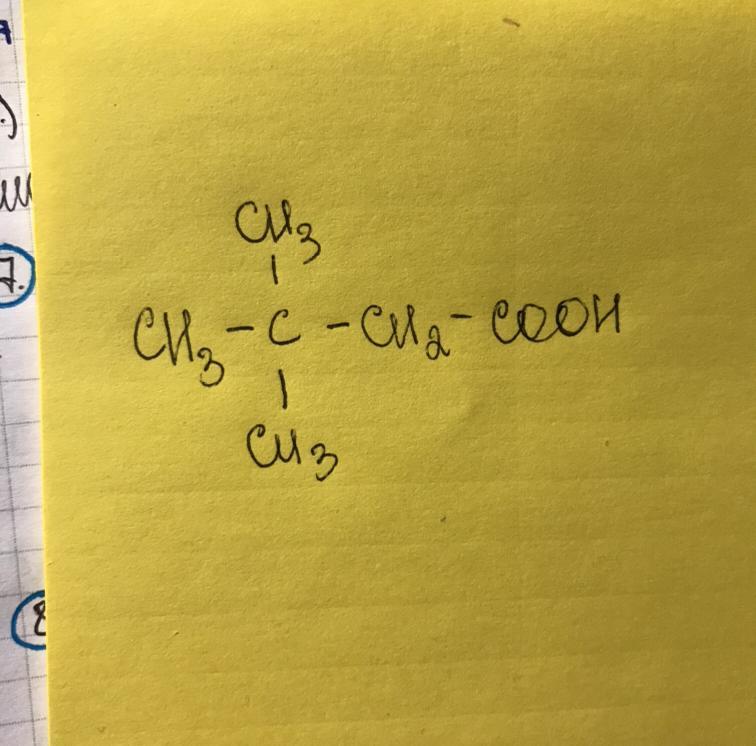 CH3
CH3 - C - CH2 - COOH
CH3
7.
8